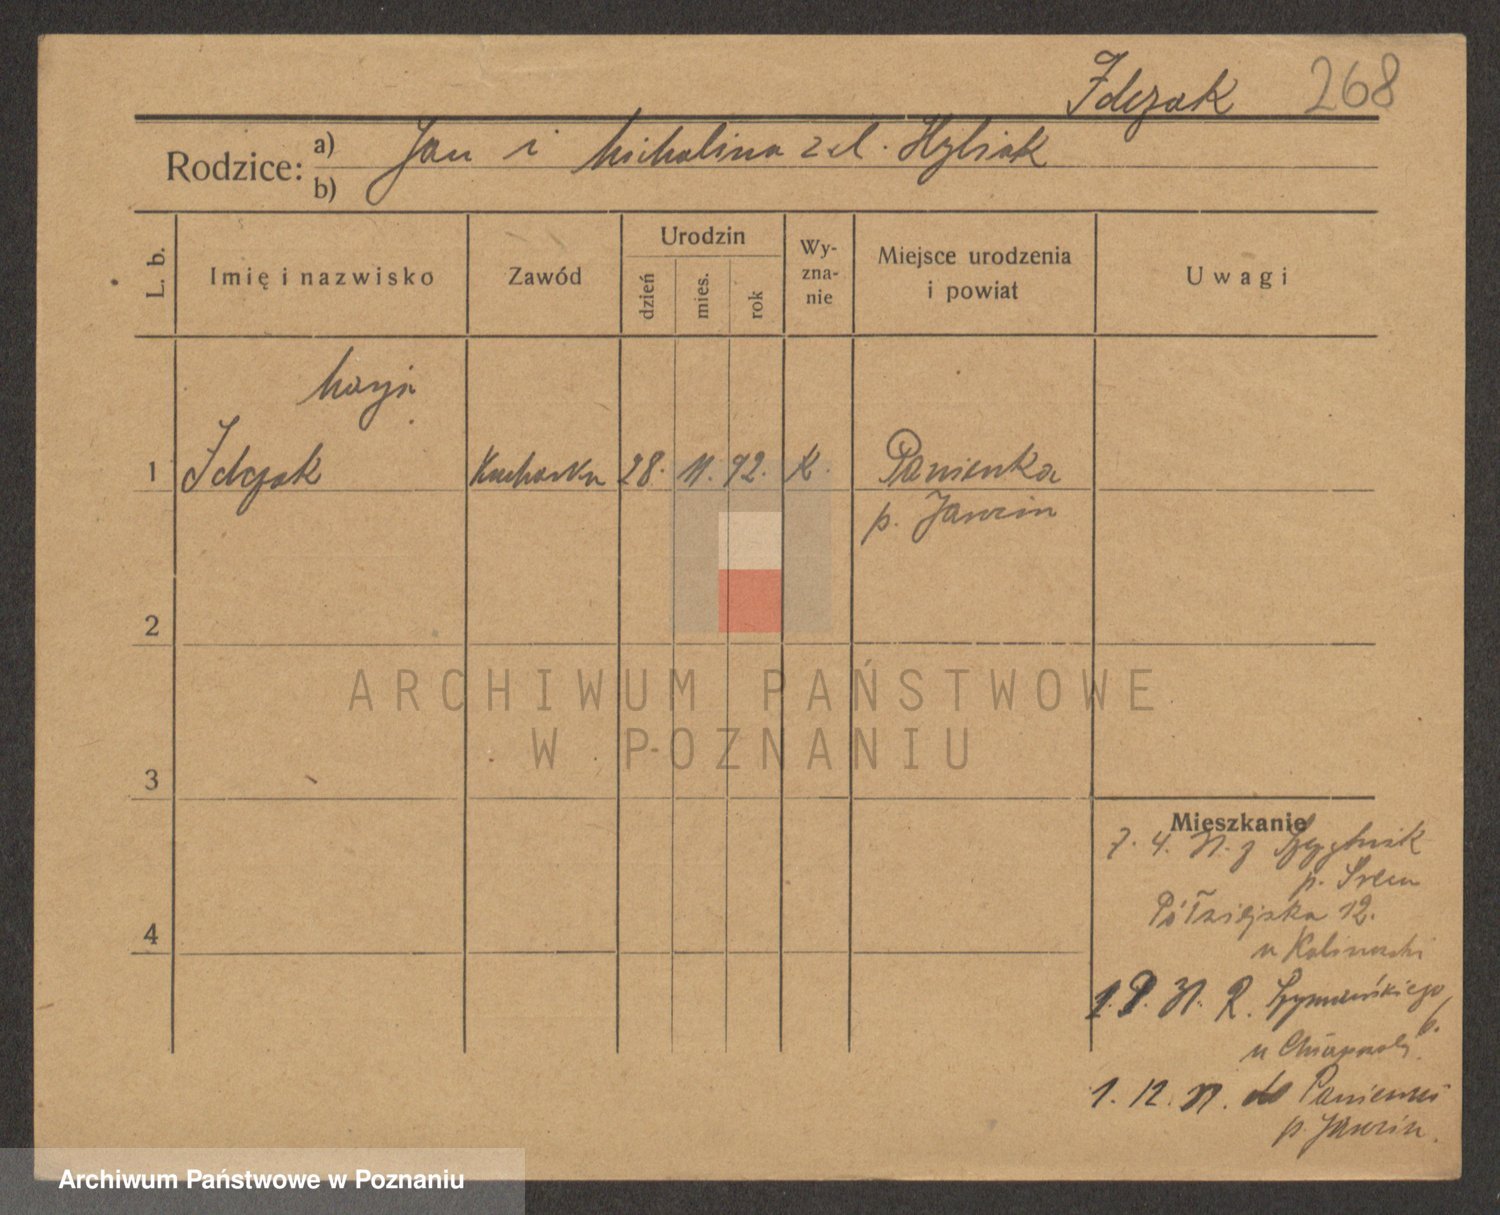 Idczak 268
Rodzice: a) Jan i Michalina z d. Hybiak
b)
L. b.
Imię i nazwisko
Zawód
Urodzin
dzień
mies.
rok
Wy-
zna-
nie
Miejsce urodzenia
i powiat
Uwagi
Marja
1 Idczak Kucharka 28. 11. 92. K. Panienka
p. Jarocin
2
3
4
ARCHIWUM PAŃSTWOWE
W POZNANIU
Mieszkanie
7. 4. 31. z
p. Śrem
Półwiejska 12.
u Kalinowski
1. 9. 31. R. Szymańskiego
6.
u
1. 12. 31. do Panienki
p. Jarocin.
Archiwum Państwowe w Poznaniu